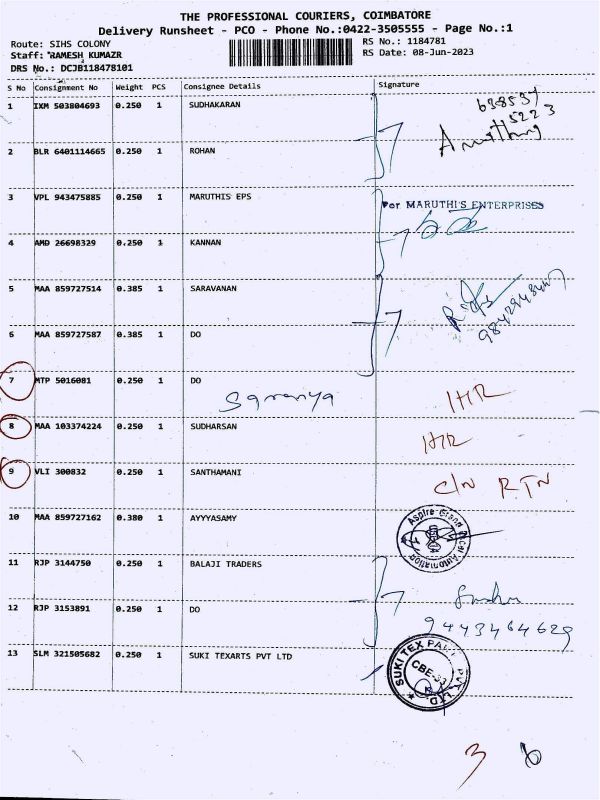 THE PROFESSIONAL COURIERS, COIMBATORE
Delivery Runsheet - PCO - Phone No.:0422-3505555 - Page No.:1
Route: SIHS COLONY
RS No.: 1184781
Staff: RAMESH KUMAZR
RS Date: 08-Jun-2023
DRS No.: DCJB118478101
S No Consignment No Weight PCS Consignee Details Signature
1 IXM 503804693 0.250 1 SUDHAKARAN
2 BLR 6401114665 0.250 1 ROHAN
3 VPL 943475885 0.250 1 MARUTHIS EPS
For MARUTHI'S ENTERPRISES
4 AMD 26698329 0.250 1 KANNAN
5 MAA 859727514 0.385 1 SARAVANAN
6 MAA 859727587 0.385 1 DO
7 MTP 5016081 0.250 1 DO
Saranya
IHR
8 MAA 103374224 0.250 1 SUDHARSAN
IHR
9 VLI 300832 0.250 1 SANTHAMANI
C/N RTN
10 MAA 859727162 0.380 1 AYYYASAMY
11 RJP 3144750 0.250 1 BALAJI TRADERS
12 RJP 3153891 0.250 1 DO
9443464629
13 SLM 321505682 0.250 1 SUKI TEXARTS PVT LTD
CBE-33
3 6